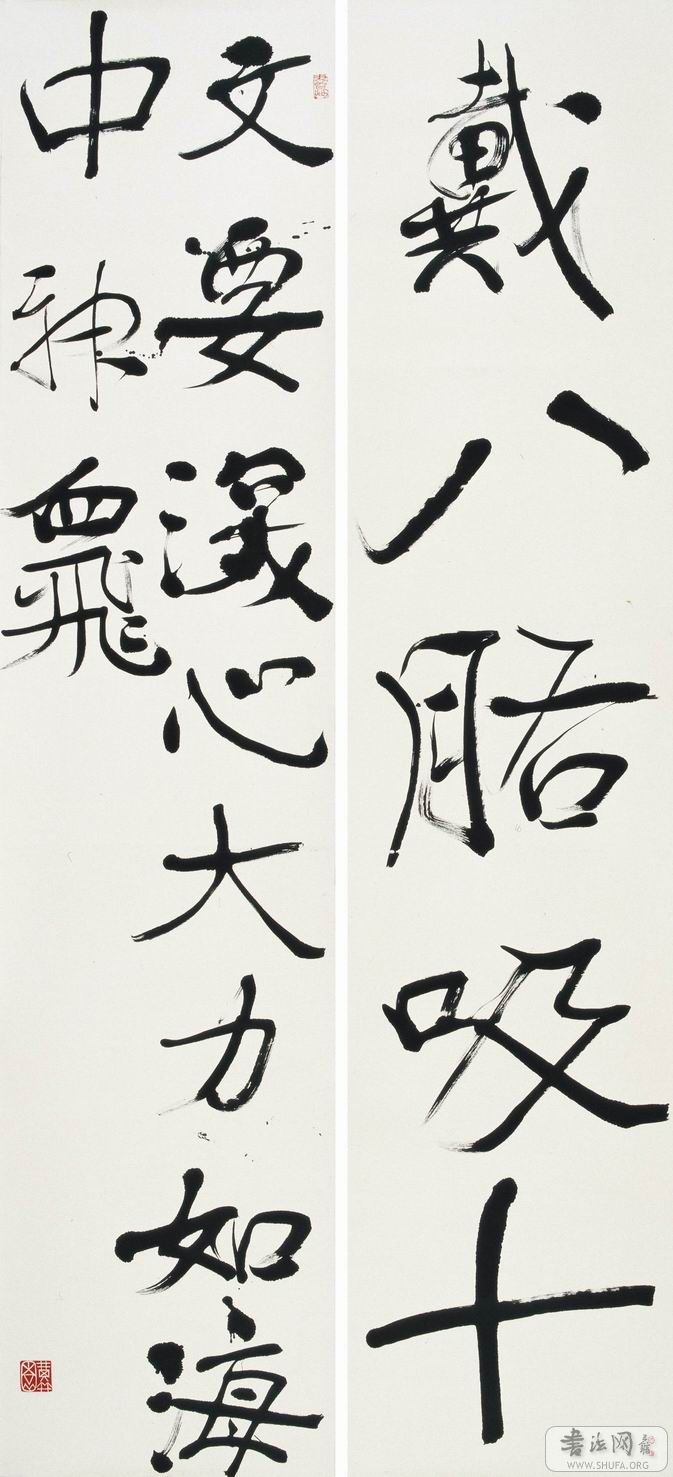 戴八吸十
文要深心大力如海
中神
书法网
WWW.SHUFA.ORG